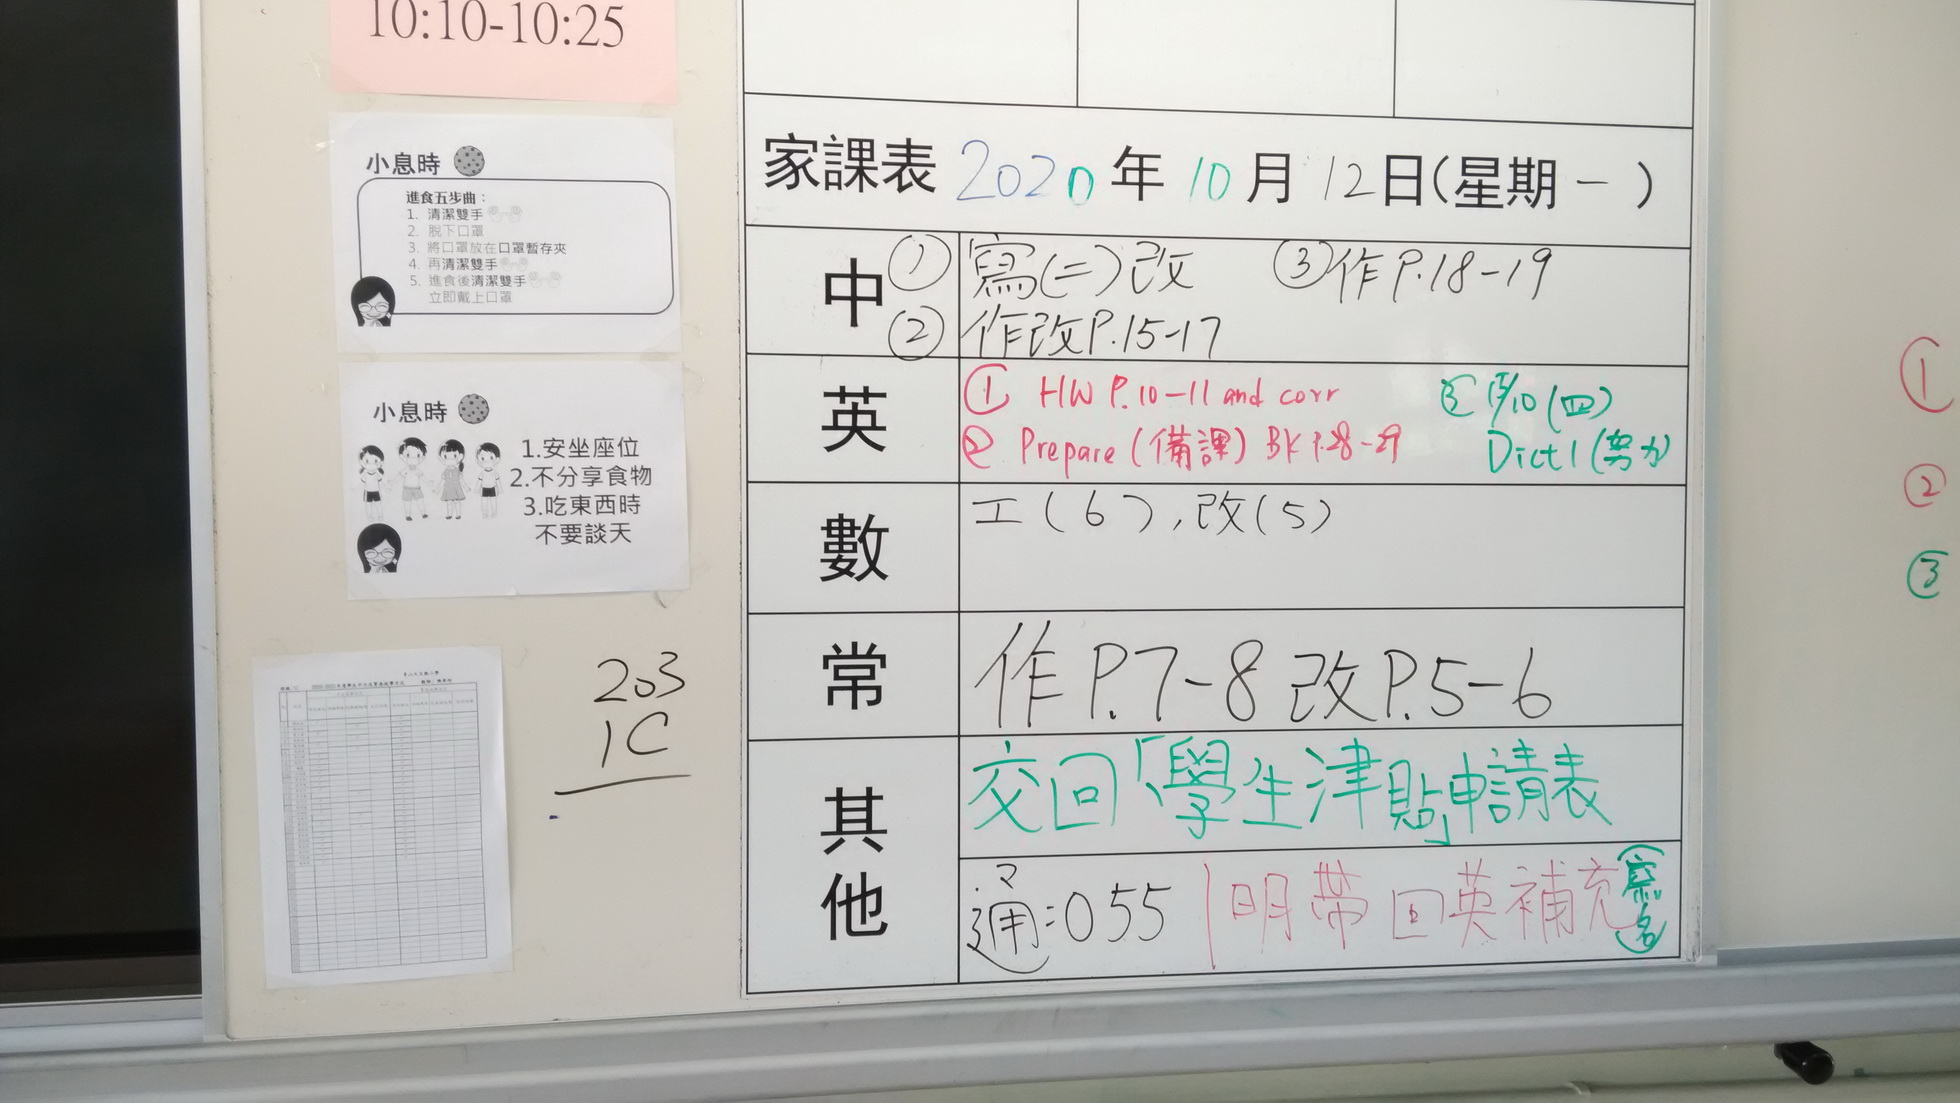 10:10-10:25
小息時
進食五步曲：
1. 清潔雙手
2. 脫下口罩
3. 將口罩放在口罩暫存夾
4. 再清潔雙手
5. 進食後清潔雙手
立即戴上口罩
小息時
1.安坐座位
2.不分享食物
3.吃東西時
不要談天
203
1C
家課表 2020年10月12日(星期一)
中
① 寫(二)改 ③作P.18-19
② 作改P.15-17
英
① HW P.10-11 and corr
② Prepare (備課) BK P.28-29
③ 15/10 (四)
Dict 1 (努力)
數
工(6),改(5)
常
作P.7-8 改P.5-6
其他
交回「學生津貼」申請表
通:055 | 明帶回英補充
①
②
③